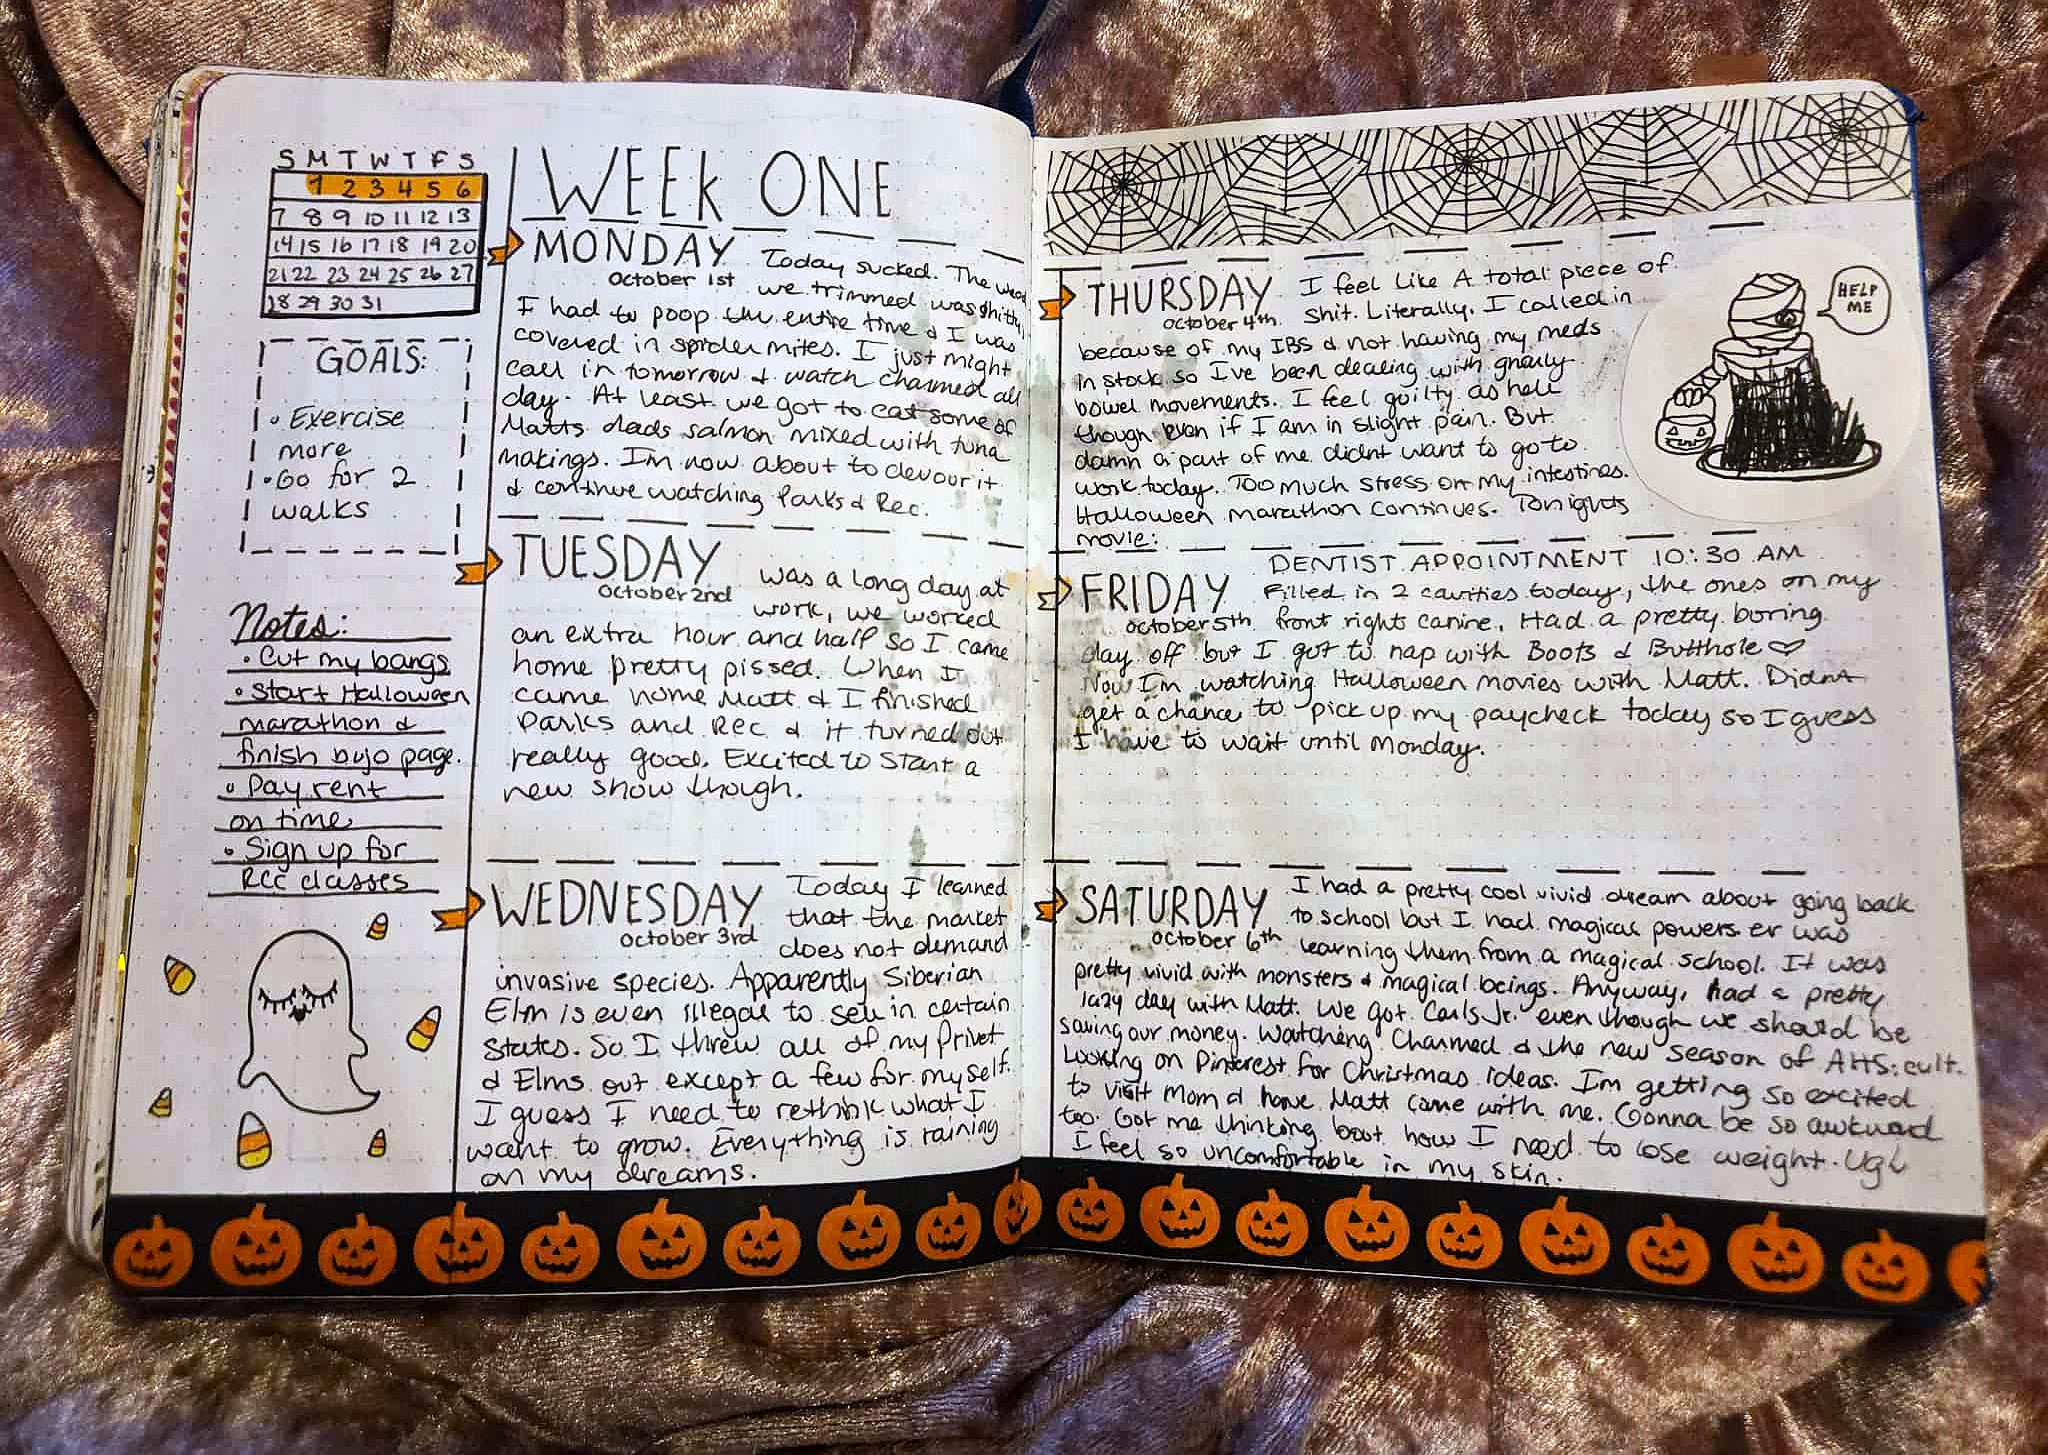 S M T W T F S
1 2 3 4 5 6
7 8 9 10 11 12 13
14 15 16 17 18 19 20
21 22 23 24 25 26 27
28 29 30 31
GOALS:
• Exercise
more
• Go for 2
walks
Notes:
• Cut my bangs
• Start Halloween
marathon &
finish bujo page.
• Pay rent
on time
• Sign up for
RCC classes
WEEK ONE
MONDAY
October 1st
Today sucked. The weed
we trimmed was shitty,
I had to poop the entire time & I was
covered in spider mites. I just might
call in tomorrow & watch charmed all
day. At least we got to eat some of
Matts dads salmon mixed with tuna
makings. I'm now about to devour it
& continue watching Parks & Rec.
TUESDAY
October 2nd
was a long day at
work, we worked
an extra hour and half so I came
home pretty pissed. When I
came home Matt & I finished
Parks and Rec & it turned out
really good. Excited to start a
new show though.
WEDNESDAY
October 3rd
Today I learned
that the market
does not demand
invasive species. Apparently Siberian
Elm is even illegal to sell in certain
states. So I threw all of my Privet
& Elms out except a few for myself.
I guess I need to rethink what I
want to grow. Everything is raining
on my dreams.
THURSDAY
October 4th
I feel like A total piece of
shit. Literally. I called in
because of my IBS & not having my meds
in stock so I've been dealing with gnarly
bowel movements. I feel guilty as hell
though even if I am in slight pain. But
damn a part of me didnt want to go to
work today. Too much stress on my intestines.
Halloween marathon continues. Tonights
movie:
HELP
ME
DENTIST APPOINTMENT 10:30 AM
FRIDAY
October 5th
Filled in 2 cavities today, the ones on my
front rights canine. Had a pretty boring
day off but I got to nap with Boots & Butthole ♡
Now I'm watching Halloween movies with Matt. Didnt
get a chance to pick up my paycheck today so I guess
I have to wait until Monday.
SATURDAY
October 6th
I had a pretty cool vivid dream about going back
to school but I had magical powers er was
learning them from a magical school. It was
pretty vivid with monsters & magical beings. Anyway, had a pretty
lazy day with Matt. We got Carls Jr. even though we should be
saving our money. Watching Charmed & the new season of AHS: cult.
Looking on Pinterest for Christmas ideas. I'm getting so excited
to visit Mom & have Matt come with me. Gonna be so awkward
too. Got me thinking bout how I need to lose weight. Ugh
I feel so uncomfortable in my skin.